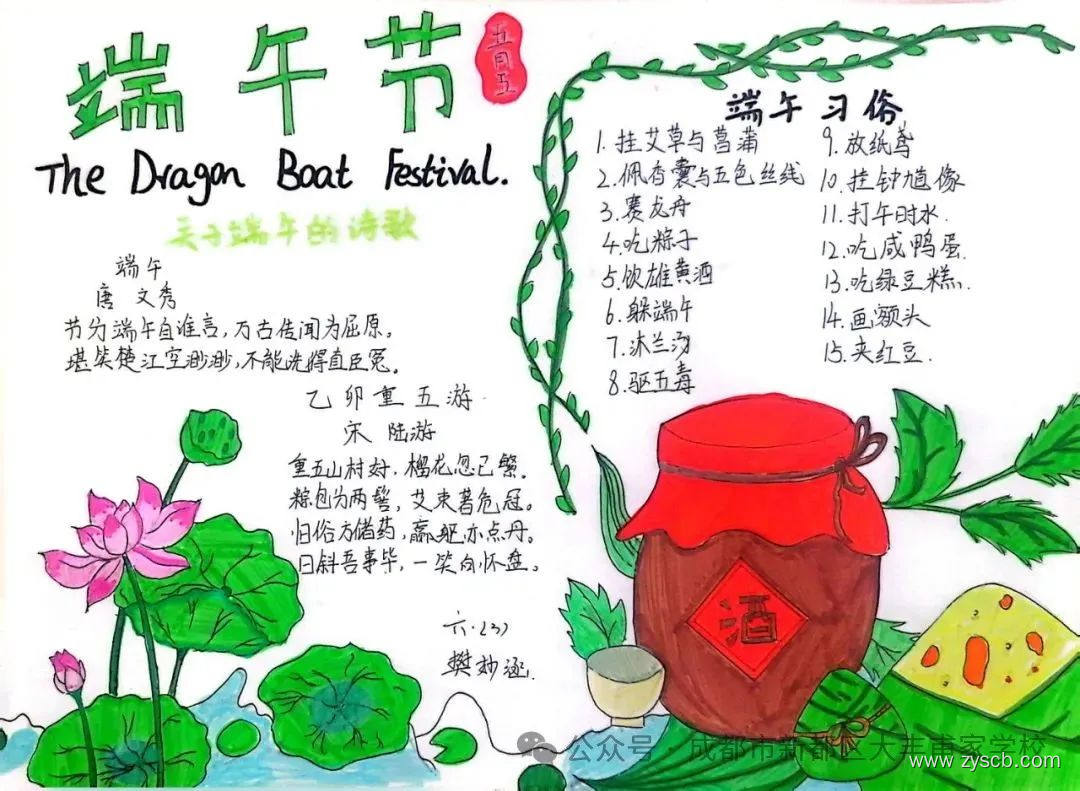 端午节
五月五
The Dragon Boat Festival.
关于端午的诗歌
端午
唐 文秀
节分端午自谁言,万古传闻为屈原。
堪笑楚江空渺渺,不能洗得直臣冤。
乙卯重五游
宋 陆游
重五山村好,榴花忽已繁。
粽包分两髻,艾束著危冠。
旧俗方储药,羸躯亦点丹。
日斜吾事毕,一笑向杯盘。
六·(3)
樊妙涵
端午习俗
1.挂艾草与菖蒲
2.佩香囊与五色丝线
3.赛龙舟
4.吃粽子
5.饮雄黄酒
6.躲端午
7.沐兰汤
8.驱五毒
9.放纸鸢
10.挂钟馗像
11.打午时水.
12.吃咸鸭蛋.
13.吃绿豆糕.
14.画额头
15.夹红豆.
酒
公众号·成都市新都区大丰甫家学校
www.zyscb.com